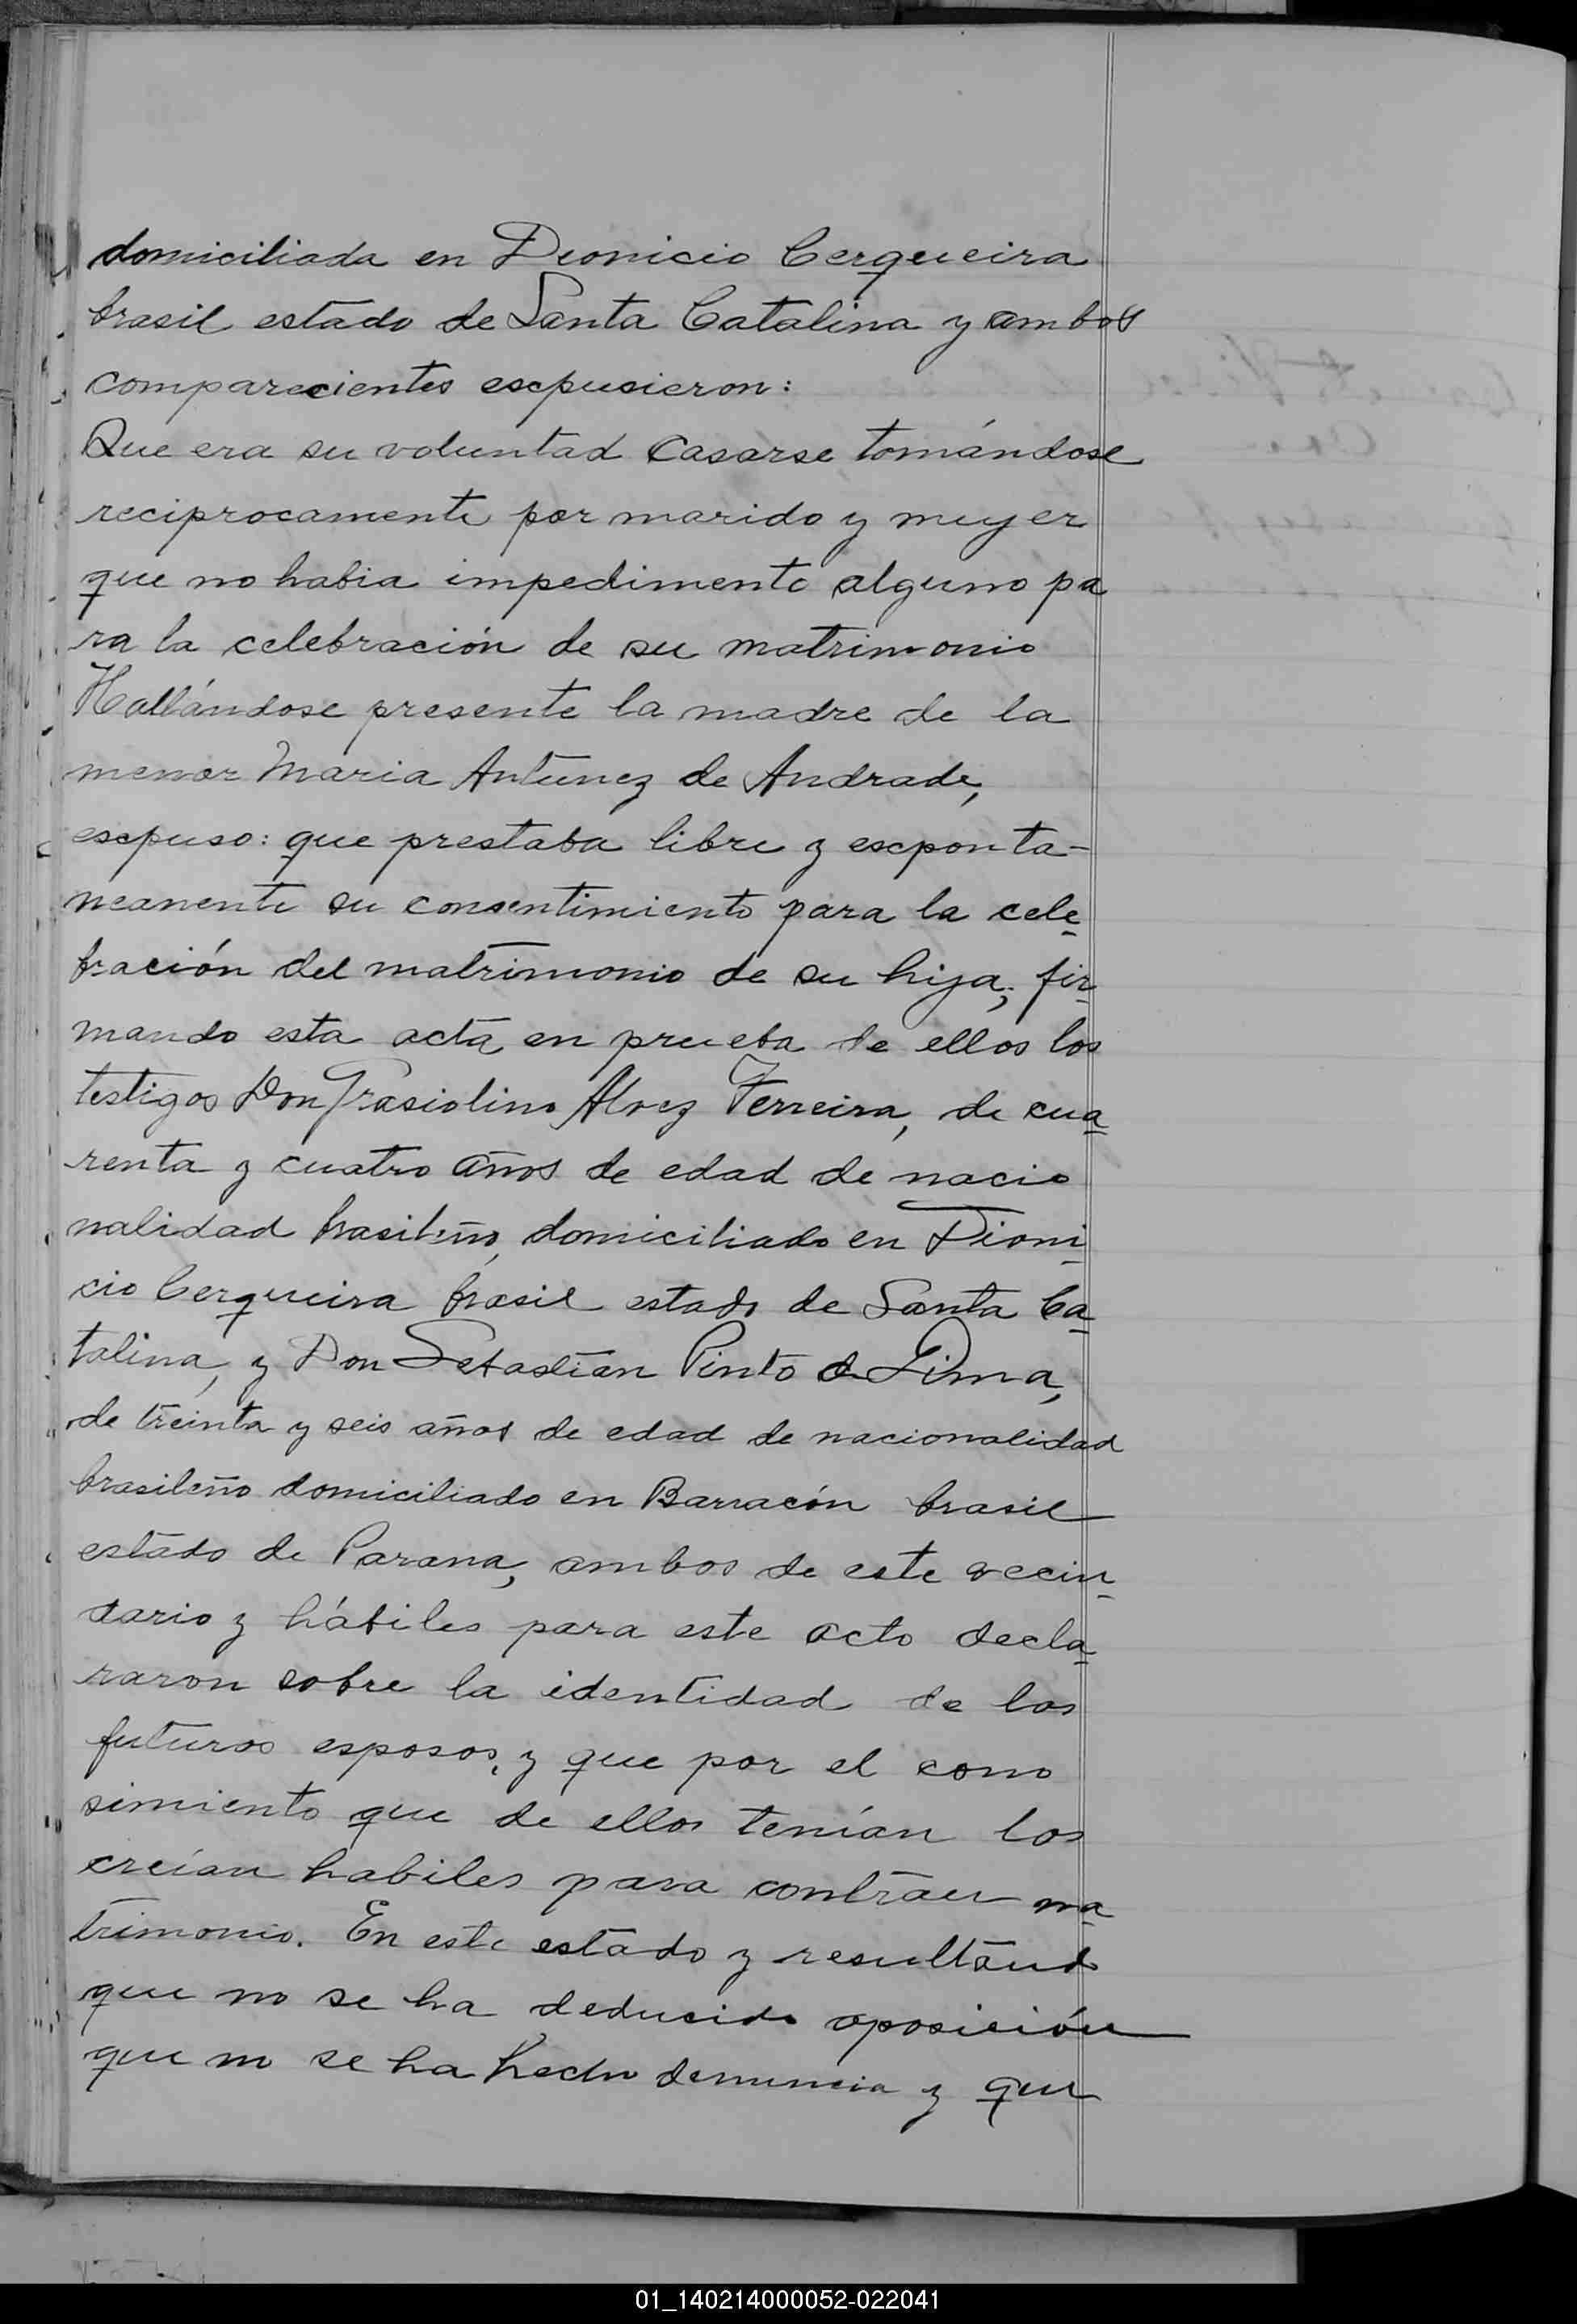 domiciliada en Dionicio Cerqueira
brasil estado de Santa Catalina y ambos
comparecientes escpusieron:
Que era su voluntad casarse tomándose
reciprocamente por marido y mujer
que no habia impedimento alguno pa
ra la celebración de su matrimonio
Hallándose presente la madre de la
menor Maria Antunez de Andrade,
escpuso: que prestaba libre y escponta-
neamente su consentimiento para la cele-
bración del matrimonio de su hija; fir-
mando esta acta en prueba de ellos los
testigos Don Grasiolino Alvez Ferreira, de cua-
renta y cuatro años de edad de nacio
nalidad brasileño, domiciliado en Dioni-
cio Cerqueira brasil estado de Santa Ca-
talina, y Don Sebastian Pinto de Lima,
de treinta y seis años de edad de nacionalidad
brasileño domiciliado en Barracón brasil
estado de Parana, ambos de este vecin-
dario y hábiles para este acto decla-
raron sobre la identidad de los
futuros esposos, y que por el cono
simiento que de ellos tenían los
creían habiles para contraer ma-
trimonio. En este estado y resultando
que no se ha deducido oposición
que no se ha hecho denuncia y que
01_140214000052-022041